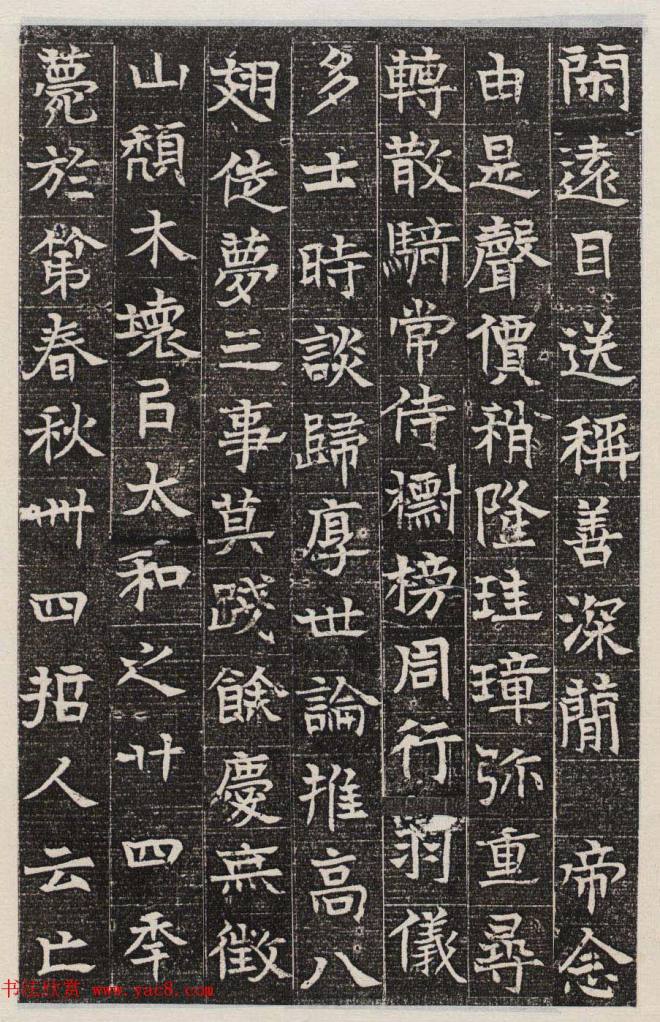 閑遠目送稱善深簡 帝念
由是聲價稍隆珪璋弥重尋
轉散騎常侍榜周行羽儀
多士時談歸厚世論推高八
翅徒夢三事莫踐餘慶無徵
山頹木壞㠯太和之廿四秊
薨於第春秋卌四哲人云亡
书法欣赏 www.yac8.com